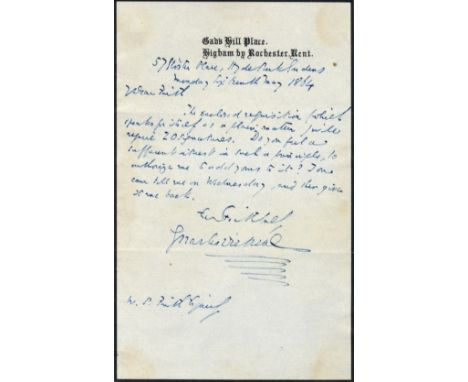 Gad's Hill Place.
Higham by Rochester, Kent.
57 Gloster Place, Hyde Park Gardens
Monday Sixteenth May 1864
My Dear Frith
The enclosed requisition (which
speaks for itself as a plain matter) will
require 20 signatures. Do you feel a
sufficient interest in such a principle, to
authorize me to add yours to it? You
can tell me on Wednesday and then give
it me back.
Ever Faithfully
Charles Dickens
W. P. Frith Esquire